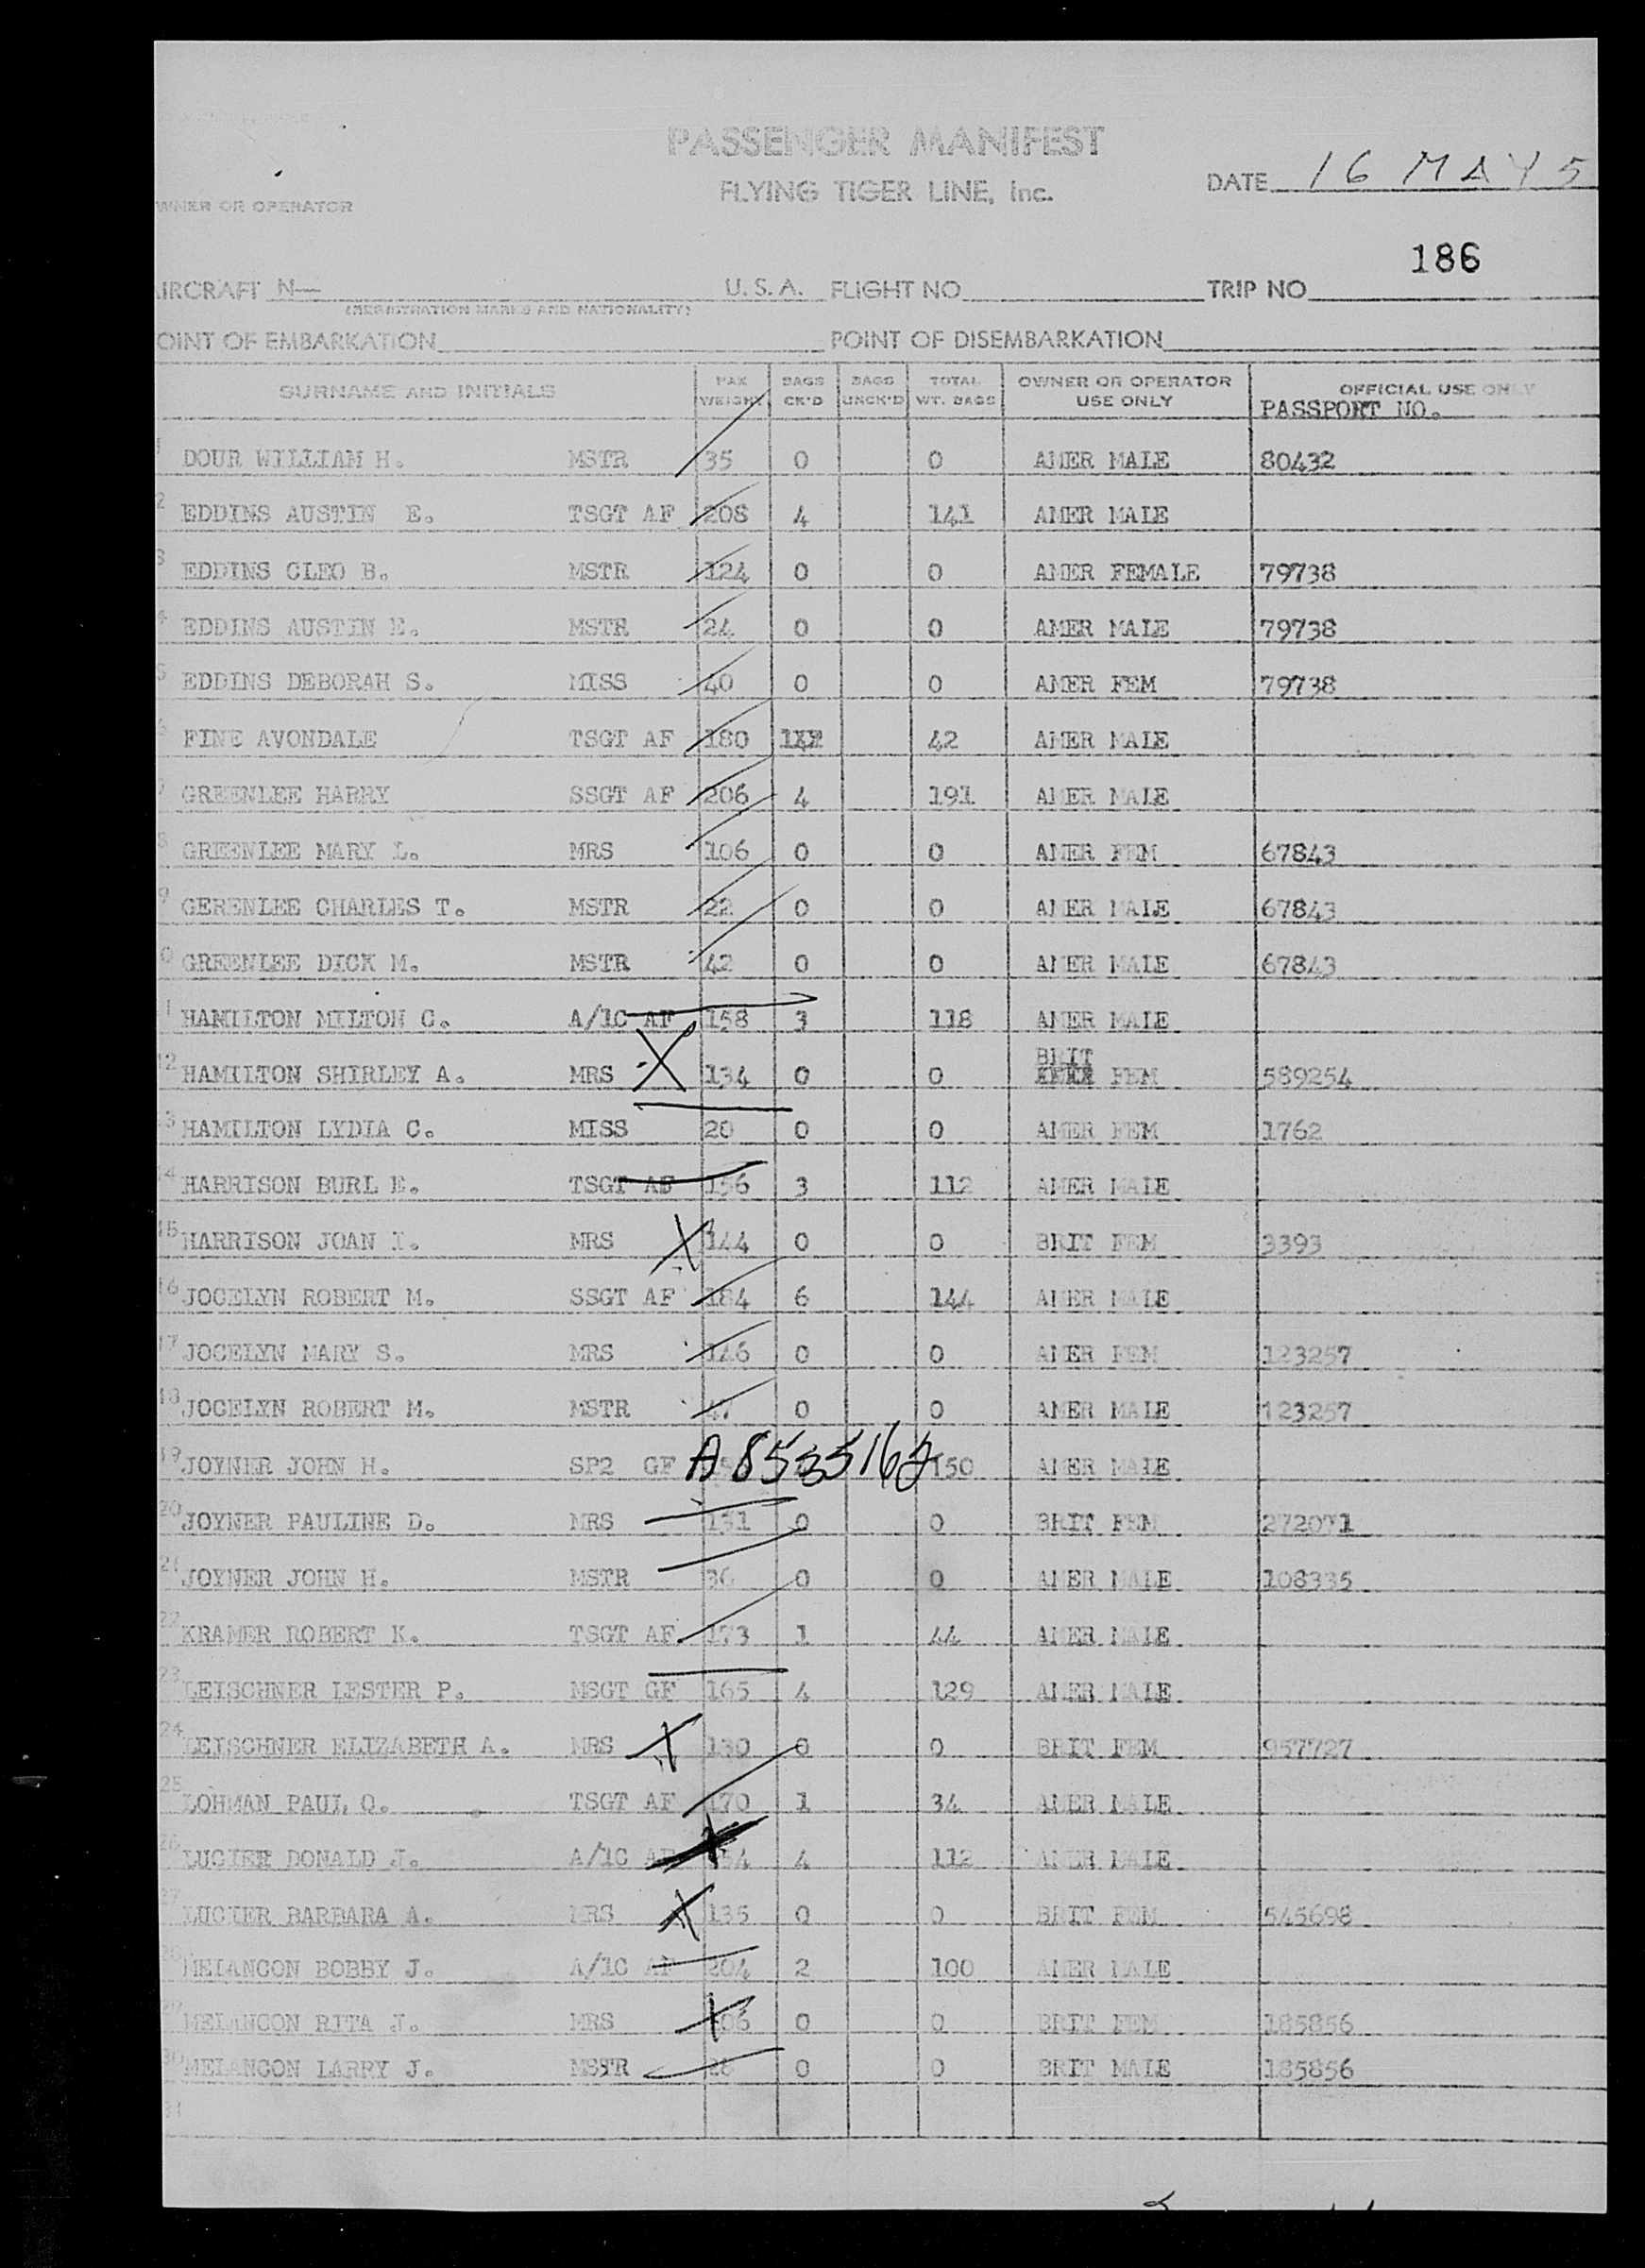 PASSENGER MANIFEST
FLYING TIGER LINE, Inc.
DATE 16 MAY 5
WNER OR OPERATOR
186
IRCRAFT N— U. S. A. FLIGHT NO TRIP NO
(REGISTRATION MARKS AND NATIONALITY)
OINT OF EMBARKATION POINT OF DISEMBARKATION
SURNAME AND INITIALS PAX WEIGHT BAGS CK'D BAGS UNCK'D TOTAL WT. BAGS OWNER OR OPERATOR USE ONLY OFFICIAL USE ONLY PASSPORT NO.
1 DOUR WILLIAM H. MSTR 35 0 0 AMER MALE 80432
2 EDDINS AUSTIN E. TSGT AF 208 4 141 AMER MALE
3 EDDINS CLEO B. MSTR 124 0 0 AMER FEMALE 79738
4 EDDINS AUSTIN E. MSTR 24 0 0 AMER MALE 79738
5 EDDINS DEBORAH S. MISS 40 0 0 AMER FEM 79738
6 FINE AVONDALE TSGT AF 180 42 AMER MALE
7 GREENLEE HARRY SSGT AF 206 4 191 AMER MALE
8 GREENLEE MARY L. MRS 106 0 0 AMER FEM 67843
9 GERENLEE CHARLES T. MSTR 22 0 0 AMER MALE 67843
0 GREENLEE DICK M. MSTR 42 0 0 AMER MALE 67843
1 HAMILTON MILTON C. A/1C AF 158 3 118 AMER MALE
BRIT
12 HAMILTON SHIRLEY A. MRS X 134 0 0 FEM 589254
13 HAMILTON LYDIA C. MISS 20 0 0 AMER FEM 1762
14 HARRISON BURL E. TSGT AF 156 3 112 AMER MALE
15 HARRISON JOAN I. MRS X 144 0 0 BRIT FEM 3393
16 JOCELYN ROBERT M. SSGT AF 184 6 144 AMER MALE
17 JOCELYN MARY S. MRS 146 0 0 AMER FEM 123257
18 JOCELYN ROBERT M. MSTR 0 0 AMER MALE 123257
19 JOYNER JOHN H. SP2 GF A8535162 150 AMER MALE
20 JOYNER PAULINE D. MRS 131 0 0 BRIT FEM 272071
21 JOYNER JOHN H. MSTR 36 0 0 AMER MALE 108335
22 KRAMER ROBERT K. TSGT AF 173 1 44 AMER MALE
23 LEISCHNER LESTER P. MSGT GF 165 4 129 AMER MALE
24 LEISCHNER ELIZABETH A. MRS X 130 0 0 BRIT FEM 957727
25 LOHMAN PAUL O. TSGT AF 170 1 34 AMER MALE
26 LUCIER DONALD J. A/1C 4 112 AMER MALE
27 LUCIER BARBARA A. MRS X 135 0 0 BRIT FEM 545698
28 MELANCON BOBBY J. A/1C AF 204 2 100 AMER MALE
29 MELANCON RITA J. MRS X 0 0 BRIT FEM 185856
30 MELANCON LARRY J. MSTR 28 0 0 BRIT MALE 185856
31